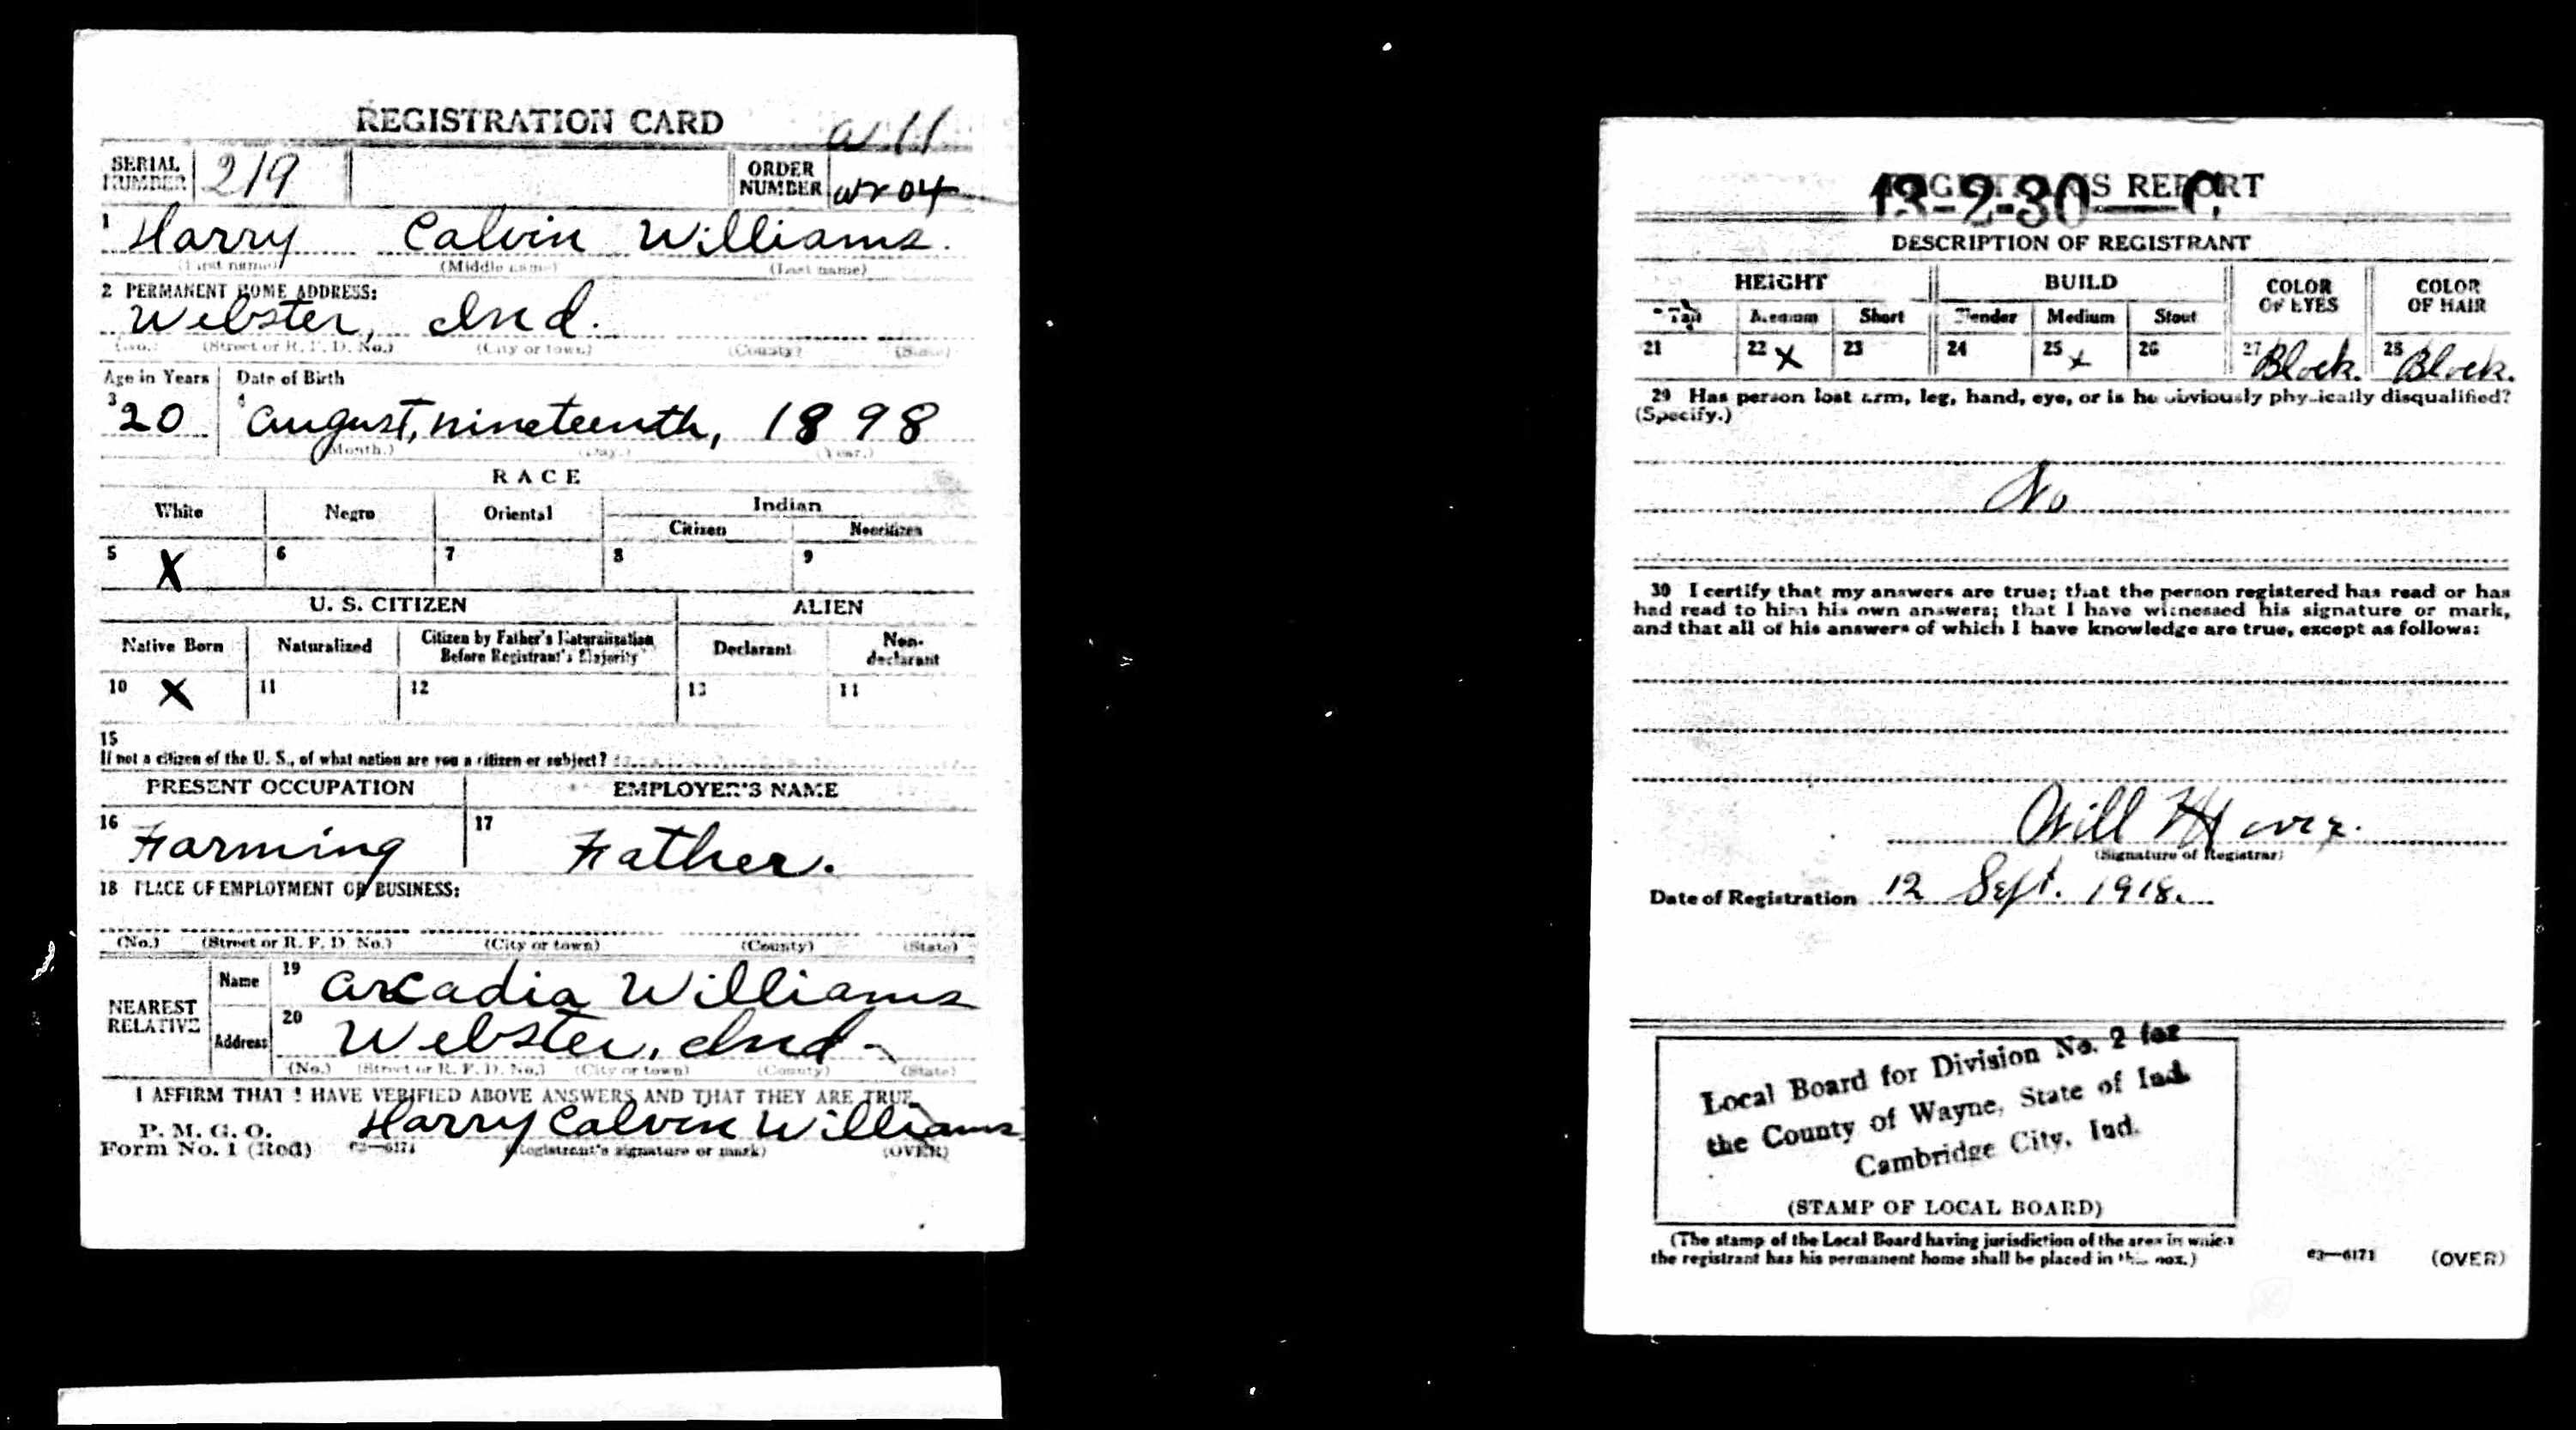 REGISTRATION CARD
a 11
SERIAL NUMBER 219 ORDER NUMBER
1 Harry Calvin Williams.
(First name) (Middle name) (Last name)
2 PERMANENT HOME ADDRESS:
Webster, Ind.
(No.) (Street or R. F. D. No.) (City or town) (County) (State)
Age in Years Date of Birth
3 20 4 August, nineteenth, 1898
(Month.) (Day.) (Year.)
RACE
White Negro Oriental Indian
Citizen Noncitizen
5 X 6 7 8 9
U. S. CITIZEN ALIEN
Native Born Naturalized Citizen by Father's Naturalization Before Registrant's Majority Declarant Non-declarant
10 X 11 12 13 14
15
If not a citizen of the U. S., of what nation are you a citizen or subject?
PRESENT OCCUPATION EMPLOYER'S NAME
16 Farming 17 Father.
18 PLACE OF EMPLOYMENT OR BUSINESS:
(No.) (Street or R. F. D. No.) (City or town) (County) (State)
NEAREST RELATIVE Name 19 Arcadia Williams
Address 20 Webster, Ind.
(No.) (Street or R. F. D. No.) (City or town) (County) (State)
I AFFIRM THAT I HAVE VERIFIED ABOVE ANSWERS AND THAT THEY ARE TRUE
P. M. G. O.
Form No. 1 (Red) 03—6171 Harry Calvin Williams
(Registrant's signature or mark) (OVER)
REGISTRAR'S REPORT
13-2-30—C.
DESCRIPTION OF REGISTRANT
HEIGHT BUILD COLOR OF EYES COLOR OF HAIR
Tall Medium Short Slender Medium Stout
21 22 X 23 24 25 X 26 27 Black. 28 Black.
29 Has person lost arm, leg, hand, eye, or is he obviously physically disqualified?
(Specify.)
No
30 I certify that my answers are true; that the person registered has read or has
had read to him his own answers; that I have witnessed his signature or mark,
and that all of his answers of which I have knowledge are true, except as follows:
Will
(Signature of Registrar)
Date of Registration 12 Sept. 1918.
Local Board for Division No. 2 for
the County of Wayne, State of Ind.
Cambridge City, Ind.
(STAMP OF LOCAL BOARD)
(The stamp of the Local Board having jurisdiction of the area in which
the registrant has his permanent home shall be placed in this box.)
03—6171 (OVER)